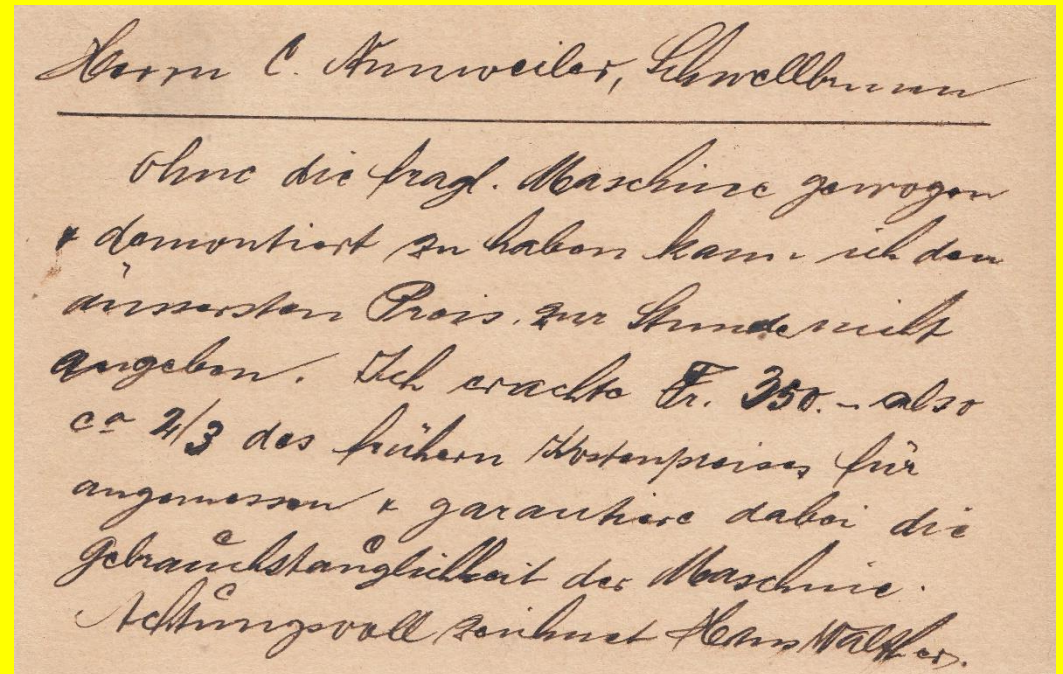 Herrn C. Nunweiler, Schwellbrunn
Ohne die fragl. Maschine gewogen
& demontiert zu haben kann ich den
äussersten Preis zur Stunde nicht
angeben. Ich erachte Fr. 350.- also
ca 2/3 des frühern Kostenpreises für
angemessen & garantiere dabei die
Gebrauchstauglichkeit der Maschine.
Achtungsvoll zeichnet Hans Walther.